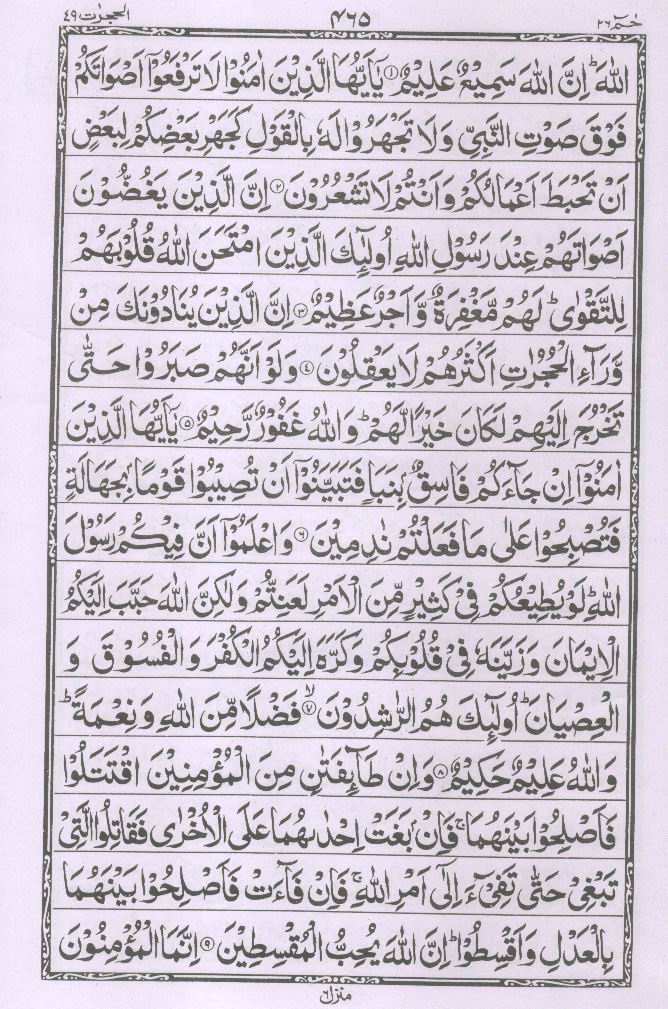 الحجرٰت ٤٩ ٤٦٥ حٰمٓ ٢٦
اللّٰهَ ؕ اِنَّ اللّٰهَ سَمِیْعٌ عَلِیْمٌ ۝۱ یٰۤاَیُّهَا الَّذِیْنَ اٰمَنُوْا لَا تَرْفَعُوْۤا اَصْوَاتَكُمْ
فَوْقَ صَوْتِ النَّبِیِّ وَلَا تَجْهَرُوْا لَهٗ بِالْقَوْلِ كَجَهْرِ بَعْضِكُمْ لِبَعْضٍ
اَنْ تَحْبَطَ اَعْمَالُكُمْ وَاَنْتُمْ لَا تَشْعُرُوْنَ ۝۲ اِنَّ الَّذِیْنَ یَغُضُّوْنَ
اَصْوَاتَهُمْ عِنْدَ رَسُوْلِ اللّٰهِ اُولٰٓئِكَ الَّذِیْنَ امْتَحَنَ اللّٰهُ قُلُوْبَهُمْ
لِلتَّقْوٰی ؕ لَهُمْ مَّغْفِرَةٌ وَّاَجْرٌ عَظِیْمٌ ۝۳ اِنَّ الَّذِیْنَ یُنَادُوْنَكَ مِنْ
وَّرَآءِ الْحُجُرٰتِ اَكْثَرُهُمْ لَا یَعْقِلُوْنَ ۝۴ وَلَوْ اَنَّهُمْ صَبَرُوْا حَتّٰی
تَخْرُجَ اِلَیْهِمْ لَكَانَ خَیْرًا لَّهُمْ ؕ وَاللّٰهُ غَفُوْرٌ رَّحِیْمٌ ۝۵ یٰۤاَیُّهَا الَّذِیْنَ
اٰمَنُوْۤا اِنْ جَآءَكُمْ فَاسِقٌۢ بِنَبَاٍ فَتَبَیَّنُوْۤا اَنْ تُصِیْبُوْا قَوْمًۢا بِجَهَالَةٍ
فَتُصْبِحُوْا عَلٰی مَا فَعَلْتُمْ نٰدِمِیْنَ ۝۶ وَاعْلَمُوْۤا اَنَّ فِیْكُمْ رَسُوْلَ
اللّٰهِ ؕ لَوْ یُطِیْعُكُمْ فِیْ كَثِیْرٍ مِّنَ الْاَمْرِ لَعَنِتُّمْ وَلٰكِنَّ اللّٰهَ حَبَّبَ اِلَیْكُمُ
الْاِیْمَانَ وَزَیَّنَهٗ فِیْ قُلُوْبِكُمْ وَكَرَّهَ اِلَیْكُمُ الْكُفْرَ وَالْفُسُوْقَ وَ
الْعِصْیَانَ ؕ اُولٰٓئِكَ هُمُ الرّٰشِدُوْنَ ۝۷ۙ فَضْلًا مِّنَ اللّٰهِ وَنِعْمَةً ؕ
وَاللّٰهُ عَلِیْمٌ حَكِیْمٌ ۝۸ وَاِنْ طَآئِفَتٰنِ مِنَ الْمُؤْمِنِیْنَ اقْتَتَلُوْا
فَاَصْلِحُوْا بَیْنَهُمَا ۚ فَاِنْۢ بَغَتْ اِحْدٰىهُمَا عَلَی الْاُخْرٰی فَقَاتِلُوا الَّتِیْ
تَبْغِیْ حَتّٰی تَفِیْٓءَ اِلٰۤی اَمْرِ اللّٰهِ ۚ فَاِنْ فَآءَتْ فَاَصْلِحُوْا بَیْنَهُمَا
بِالْعَدْلِ وَاَقْسِطُوْا ؕ اِنَّ اللّٰهَ یُحِبُّ الْمُقْسِطِیْنَ ۝۹ اِنَّمَا الْمُؤْمِنُوْنَ
منزل ٦